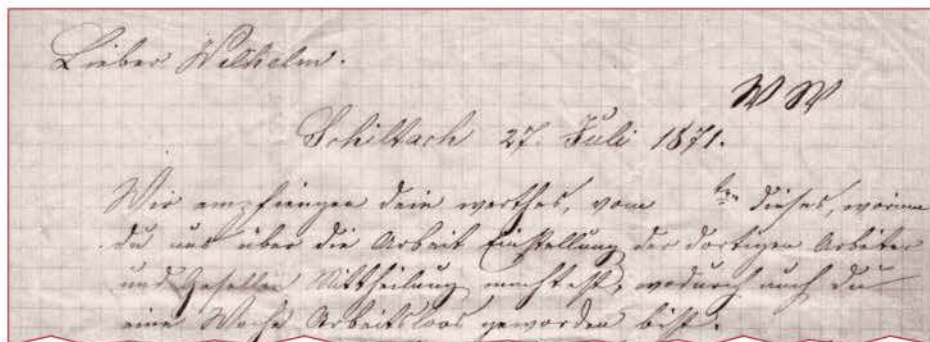 Lieber Wilhelm.
W W
Schiltach 27. Juli 1871.
Wir empfiengen dein werthes, vom ten dieses, worin
du uns über die Arbeit Einstellung der dortigen Arbeiter
und Gesellen Mittheilung machtest, wodurch auch du
eine Woche Arbeitsloos geworden bist.